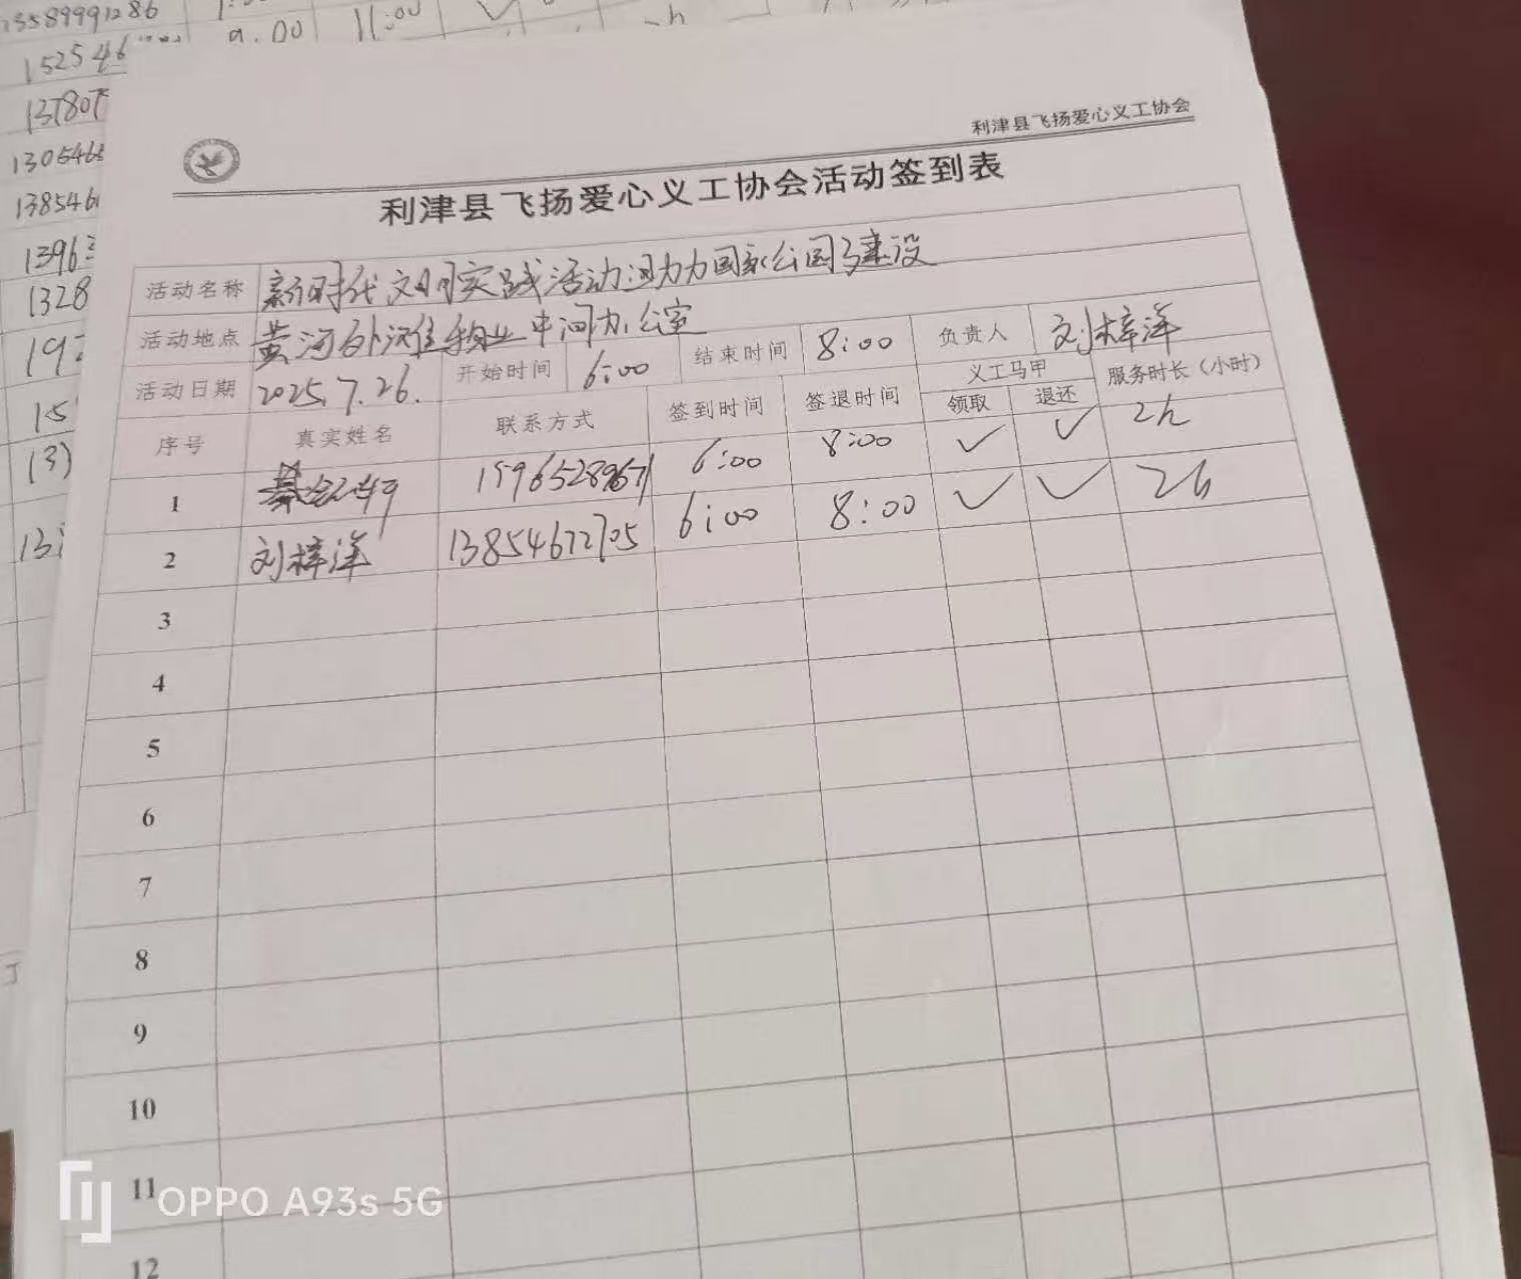 13589991286
9:00 11:00
152546
137807
1305468
1385461
1396
1328
利津县飞扬爱心义工协会
利津县飞扬爱心义工协会活动签到表
活动名称 新时代文明实践活动:助力国家公园建设
活动地点 黄河外滩物业中间办公室
活动日期 2025.7.26. 开始时间 6:00 结束时间 8:00 负责人 刘梓洋
序号 真实姓名 联系方式 签到时间 签退时间 义工马甲 领取 退还 服务时长（小时）
1 15965289671 6:00 8:00 ✓ ✓ 2h
2 刘梓洋 13854672705 6:00 8:00 ✓ ✓ 2h
3
4
5
6
7
8
9
10
11
12
OPPO A93s 5G